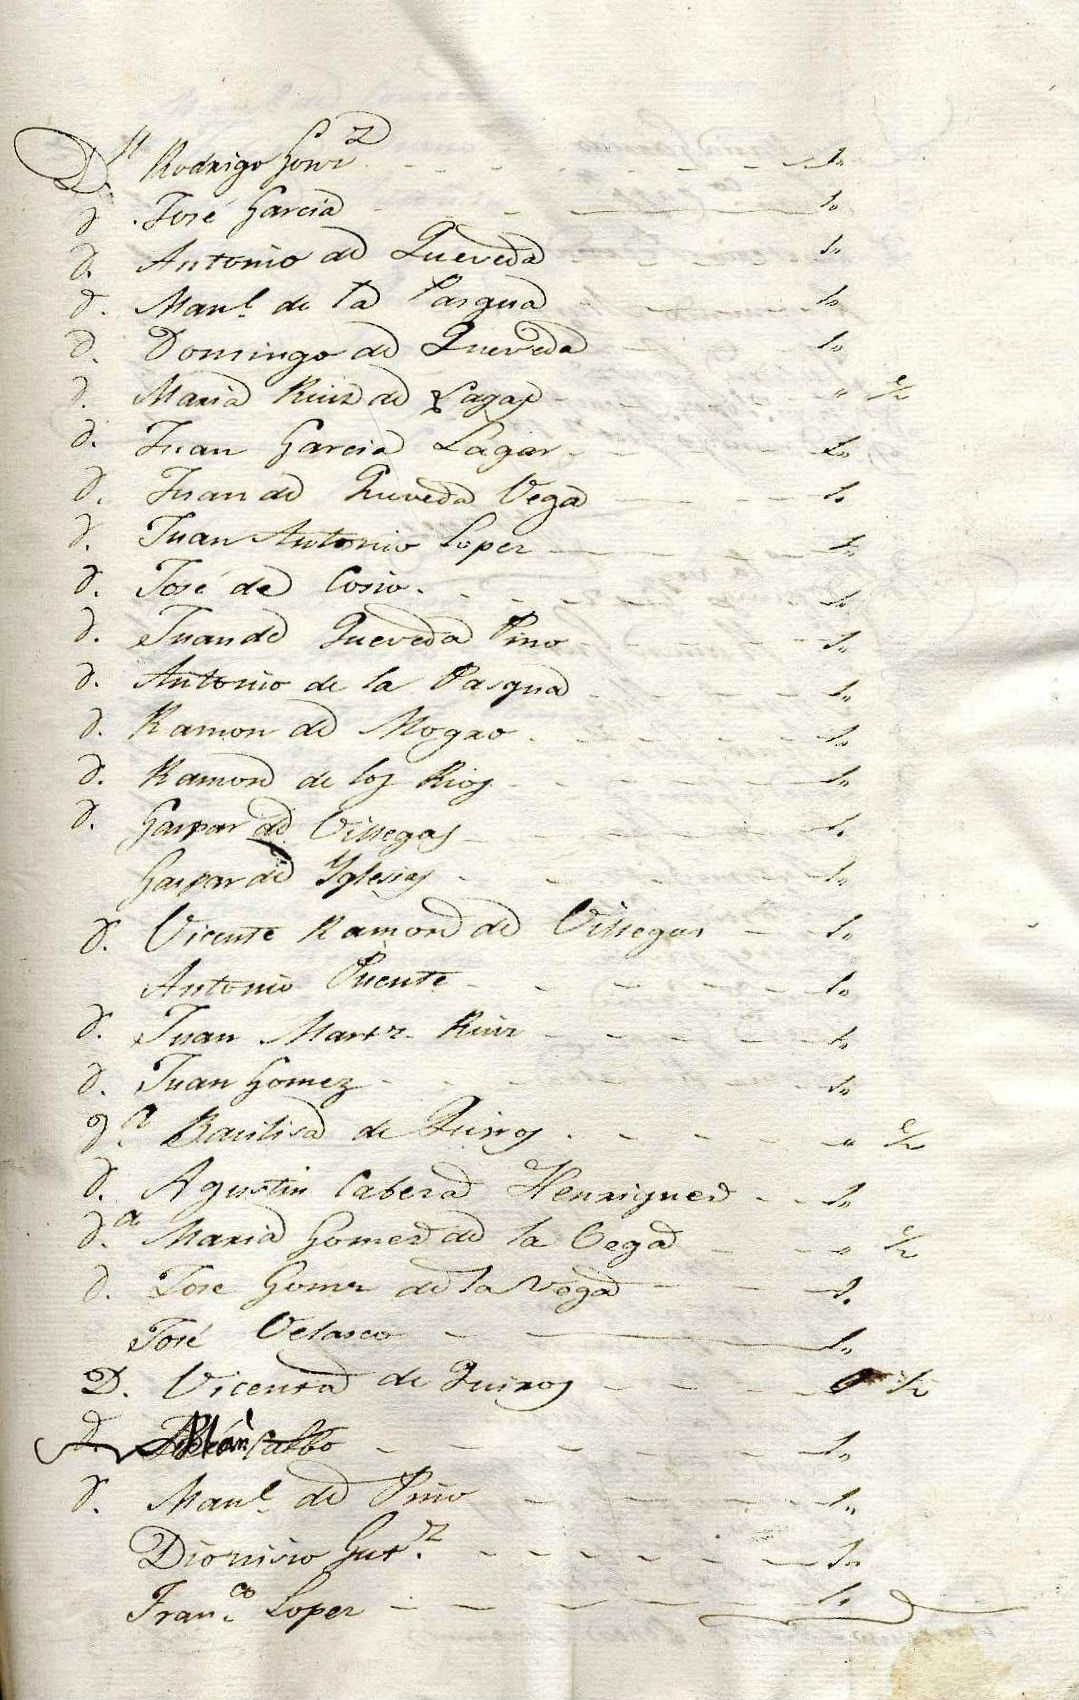 D.n Rodrigo Gonz.z 1,,
d. José Garcia 1,,
d. Antonio de Quevedo 1,,
d. Man.l de la Pasqua 1,,
d. Domingo de Quevedo 1,,
d. Maria Ruiz de " 1/2
d. Juan Garcia Lagar 1,,
d. Juan de Quevedo Vega 1,,
d. Juan Antonio Lopez 1,,
d. José de Cosio 1,,
d. Juan de Quevedo Pino 1,,
d. Antonio de la Pasqua 1,,
d. Ramon de Mogro 1,,
d. Ramon de los Rios 1,,
d. Gaspar de Villegas 1,,
Gaspar de Yglesias 1,,
d. Vicente Ramon de Villegas 1,,
Antonio Puente 1,,
d. Juan Mart.z Ruiz 1,,
d. Juan Gomez 1,,
d.a Basilisa de Quiros " 1/2
d. Agustin Cabeza Henriquez 1,,
d.a Maria Gomez de la Vega " 1/2
d. Jose Gomez de la Vega 1,,
José Velasco 1,,
D. Vicenta de Quiros 1/2
d. Calbo 1,,
d. Man.l de Pino 1,,
Dionisio Gut.z 1,,
Fran.co Lopez 1,,